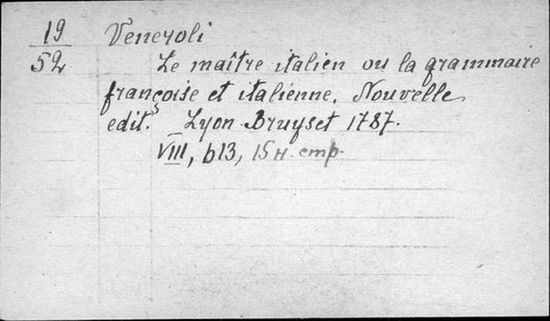 19
52
Veneroli
Le maître italien ou la grammaire
françoise et italienne. Nouvelle
edit. Lyon Bruyset 1787.
VIII, 613, 15 н. стр.